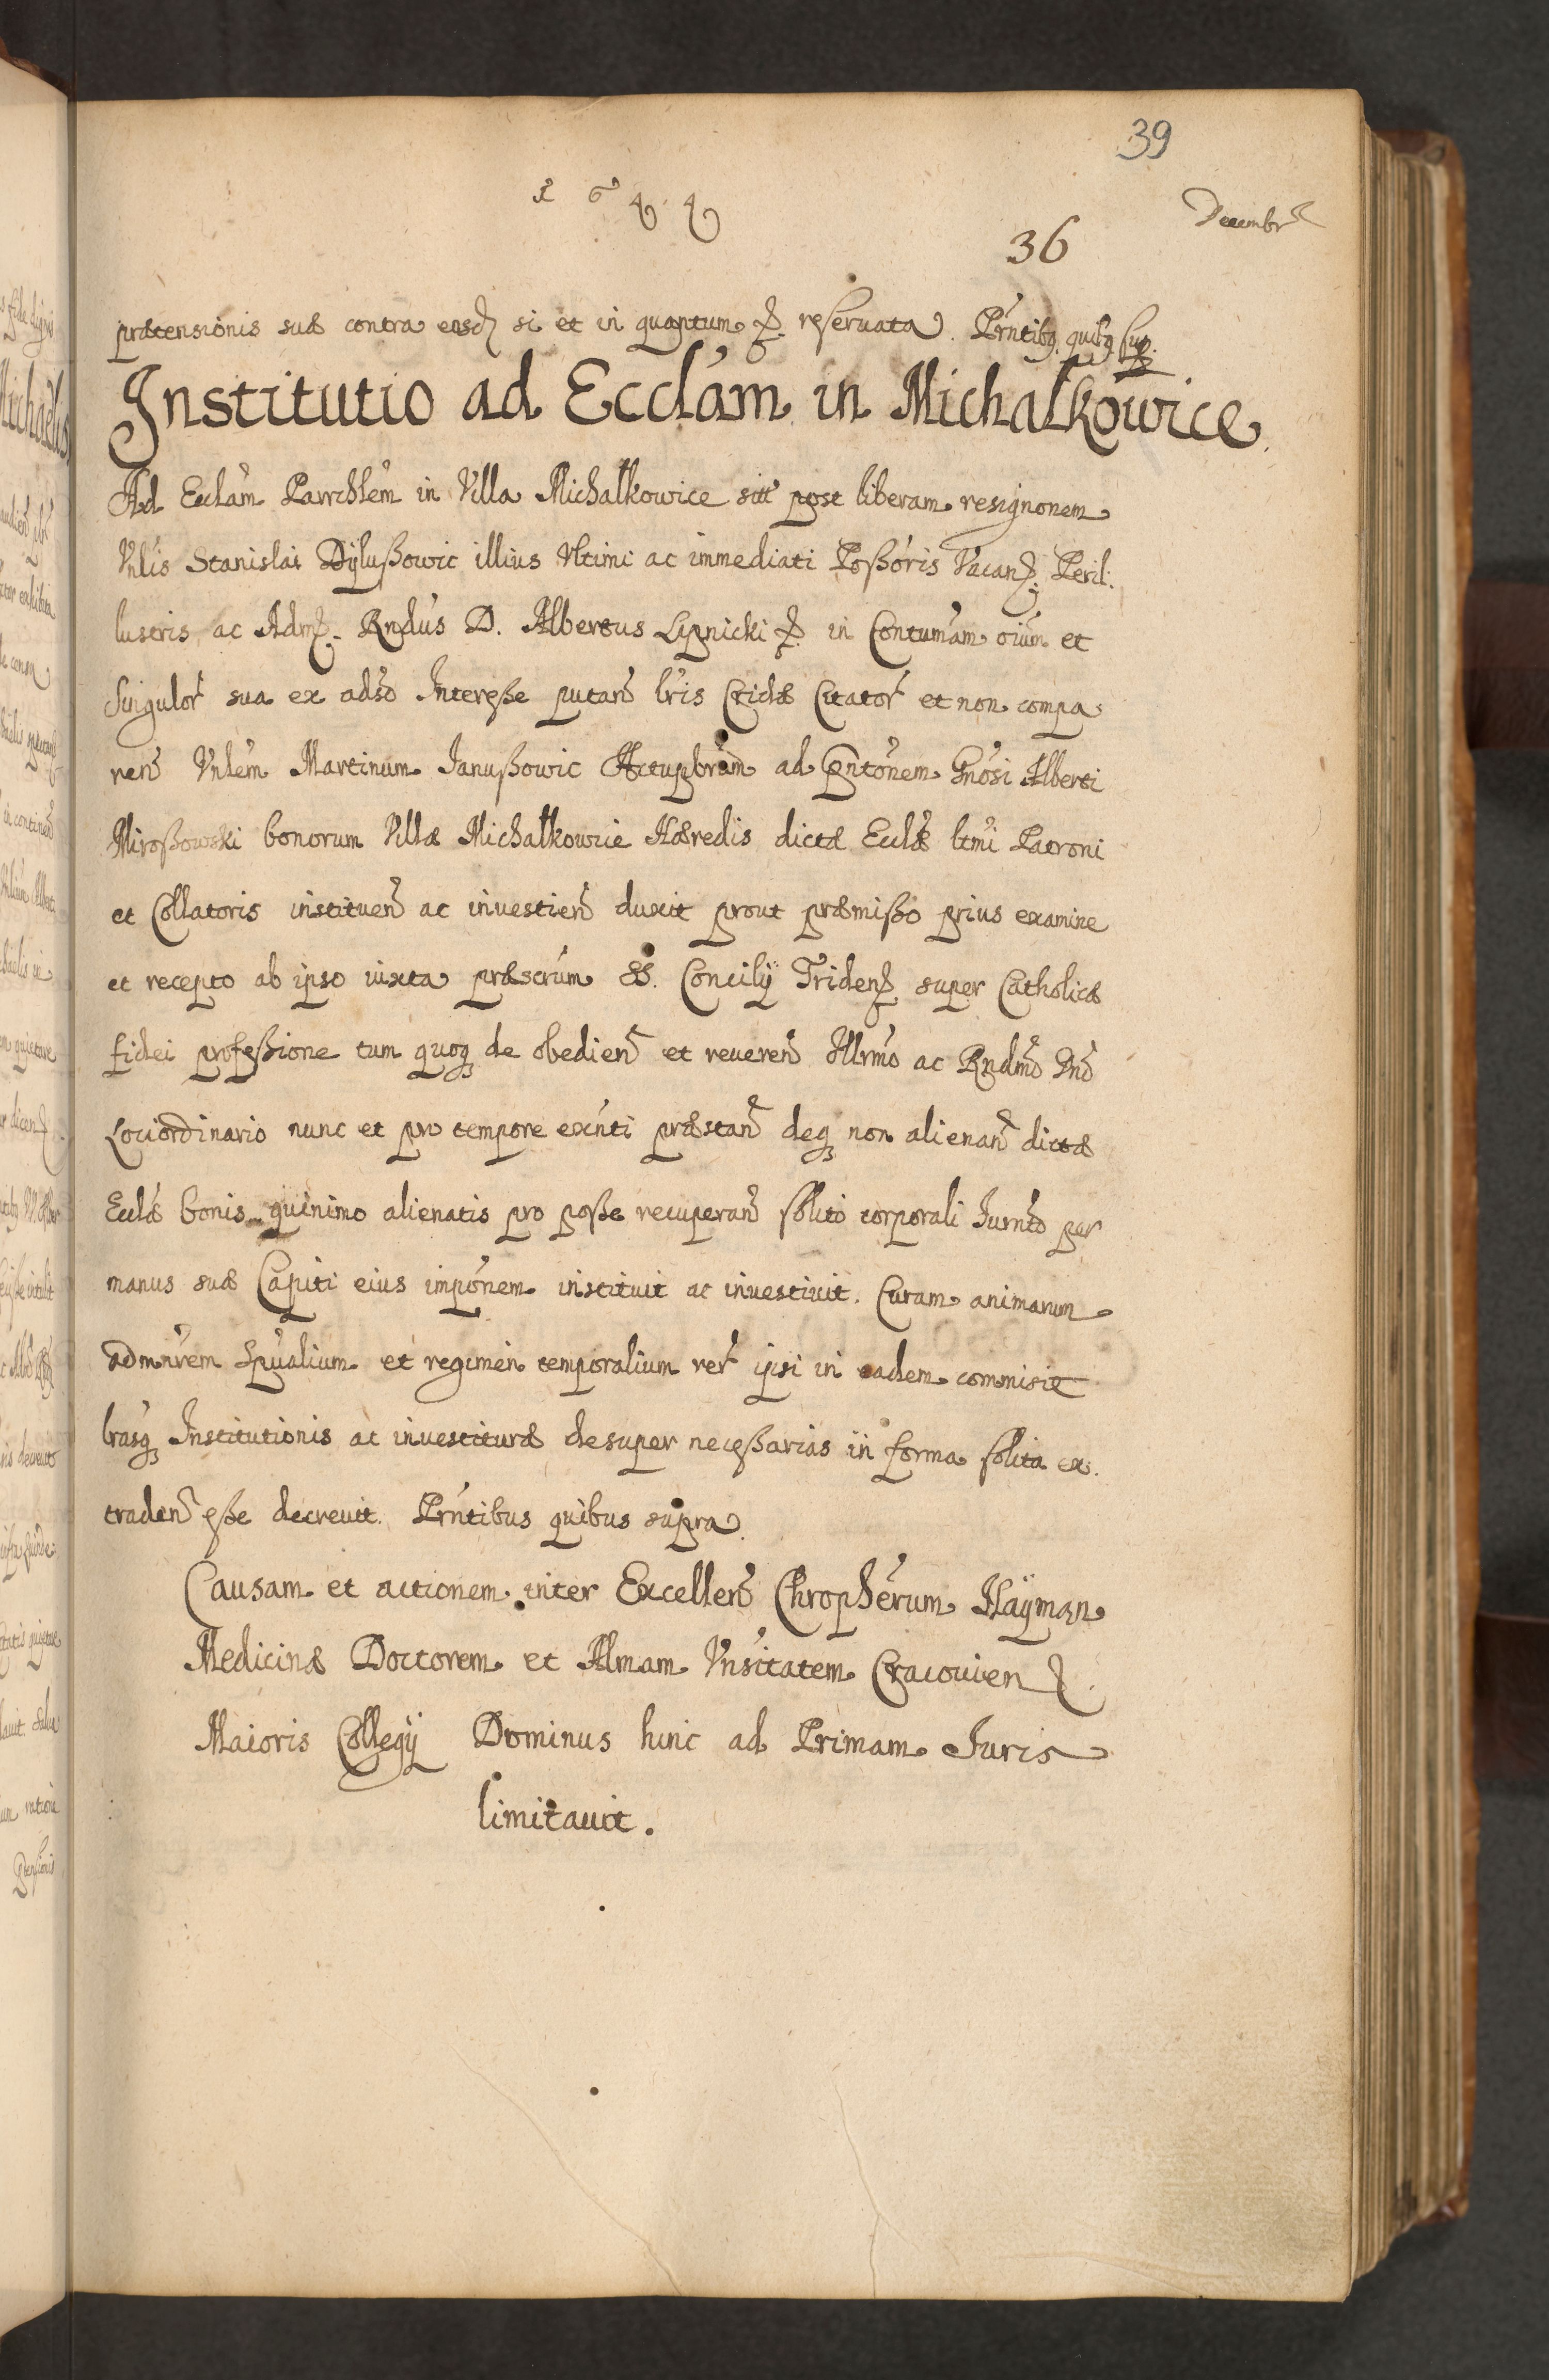 39
1 6 4 4
Decembr
36
prætensionis suæ contra eosd si et in quantum reservata. Prńtibg quibg sup.
Institutio ad Ecclám in Michałkowice
Ad Ecclám Parrchlém in Villa Michałkowice sitt post liberam resignonem
Vnlis Stanislai Dylußowic illius vltimi ac immediati Poßóris Vacan. Peril:
lustris ac Adm. Rndus D. Albertus Lipnicki in Contumám oium et
singulor sua ex adso Intereße putan lris Cridæ Citator et non compa:
ren Vnlém Martinum Janußowic Actupbrum ad pntónem Gnósi Alberti
Miroßowski bonorum Villæ Michałkowie Hæredis dictæ Ecclæ ltmi Patroni
et Collatoris instituen ac investien duxit prout præmißo prius examine
et recepto ab ipso iuxta præscrúm SS. Concilÿ Triden super Catholicæ
fidei profeßione tum quoq de obedien et reveren Illrmo ac Rndmo Dno
Lociordinario nunc et pro tempore exńti præstan deq non alienan dictæ
Ecclæ bonis quinimo alienatis pro poße recuperan solito corporali Jurnto per
manus suæ Capiti eius impónem instituit ac investivit. Curam animarum
admnrem spualium et regimen temporalium rer ipsi in eadem commisit
lrasq Institutionis ac investituræ desuper neceßarias in forma solita ex.
traden eße decrevit. Prńtibus quibus supra.
Causam et actionem inter Excellen Chrophérum Haÿman
Medicinæ Doctorem et Almam Vnsitatem Cracovien
Maioris Collegÿ Dominus hinc ad Primam Juris
limitavit.